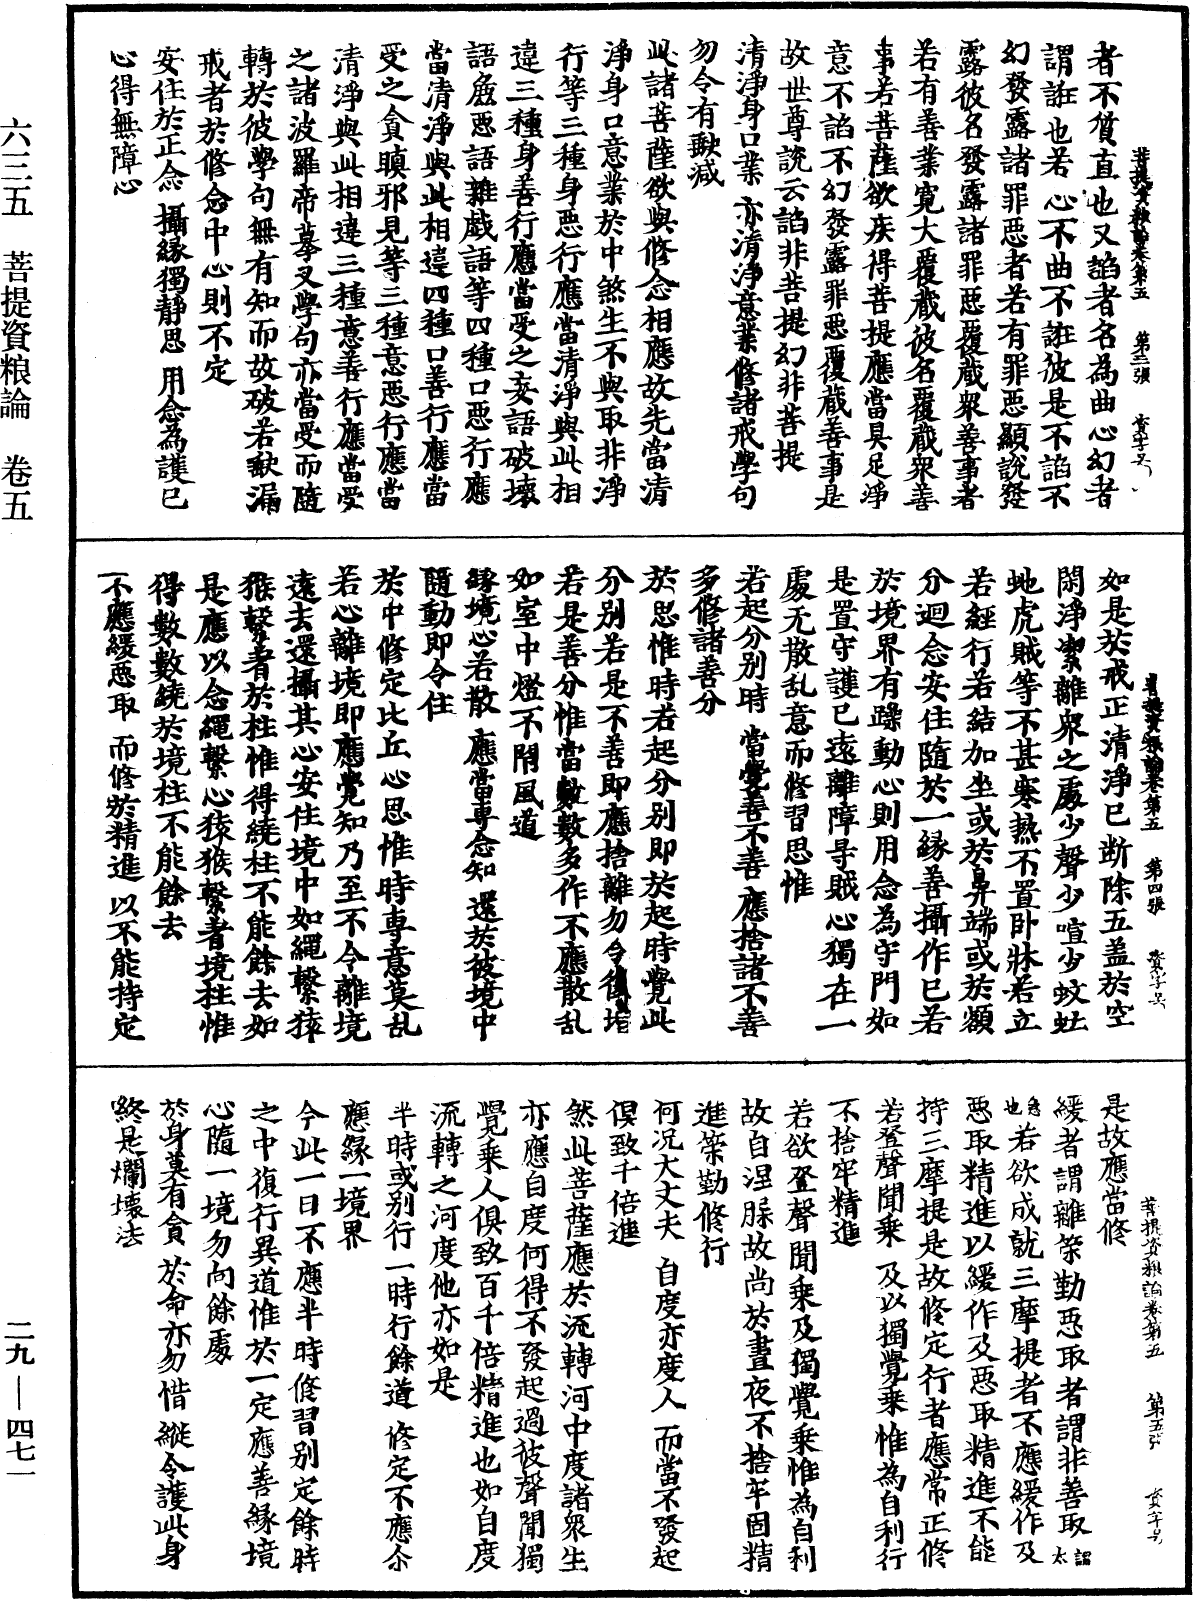 六三五　菩提資粮論　卷五
二九—四七一
菩提資粮論卷第五　第三張　資字号
者不質直也又諂者名為曲心幻者
謂誑也若心不曲不誑彼是不諂不
幻發露諸罪惡者若有罪惡顯說發
露彼名發露諸罪惡覆藏眾善事者
若有善業寬大覆藏彼名覆藏眾善
事若菩薩欲疾得菩提應當具足淨
意不諂不幻發露罪惡覆藏善事是
故世尊說云諂非菩提幻非菩提
清淨身口業　亦清淨意業　修諸戒學句
勿令有缺減
此諸菩薩欲與修念相應故先當清
淨身口意業於中煞生不與取非淨
行等三種身惡行應當清淨與此相
違三種身善行應當受之妄語破壞
語麁惡語雜戲語等四種口惡行應
當清淨與此相違四種口善行應當
受之貪瞋邪見等三種意惡行應當
清淨與此相違三種意善行應當受
之諸波羅帝摹叉學句亦當受而隨
轉於彼學句無有知而故破若缺漏
戒者於修念中心則不定
安住於正念　攝緣獨靜思　用念為護已
心得無障心
菩提資粮論卷第五　第四張　資字号
如是於戒正清淨已斷除五蓋於空
閑淨潔離眾之處少聲少喧少蚊虻
虵虎賊等不甚寒熱不置卧牀若立
若經行若結加坐或於鼻端或於額
分迴念安住隨於一緣善攝作已若
於境界有躁動心則用念為守門如
是置守護已遠離障㝵賊心獨在一
處无散乱意而修習思惟
若起分別時　當覺善不善　應捨諸不善
多修諸善分
於思惟時若起分別即於起時覺此
分別若是不善即應捨離勿令復增
若是善分惟當數數多作不應散乱
如室中燈不閇風道
緣境心若散　應當專念知　還於彼境中
隨動即令住
於中修定比丘心思惟時專意莫乱
若心離境即應覺知乃至不令離境
遠去還攝其心安住境中如繩繫猿
猴繫著於柱惟得繞柱不能餘去如
是應以念繩繫心猿猴繫著境柱惟
得數數繞於境柱不能餘去
不應緩惡取　而修於精進　以不能持定
菩提資粮論卷第五　第五張　資字号
是故應當修
緩者謂離策勤惡取者謂非善取謂太
急也若欲成就三摩提者不應緩作及
惡取精進以緩作及惡取精進不能
持三摩提是故修定行者應常正修
若登聲聞乘　及以獨覺乘　惟為自利行
不捨牢精進
若欲登聲聞乘及獨覺乘惟為自利
故自涅䏶故尚於晝夜不捨牢固精
進策勤修行
何況大丈夫　自度亦度人　而當不發起
俱致千倍進
然此菩薩應於流轉河中度諸眾生
亦應自度何得不發起過彼聲聞獨
覺乘人俱致百千倍精進也如自度
流轉之河度他亦如是
半時或別行　一時行餘道　修定不應尒
應緣一境界
今此一日不應半時修習別定餘時
之中復行異道惟於一定應善緣境
心隨一境勿向餘處
於身莫有貪　於命亦勿惜　縱令護此身
終是爛壞法